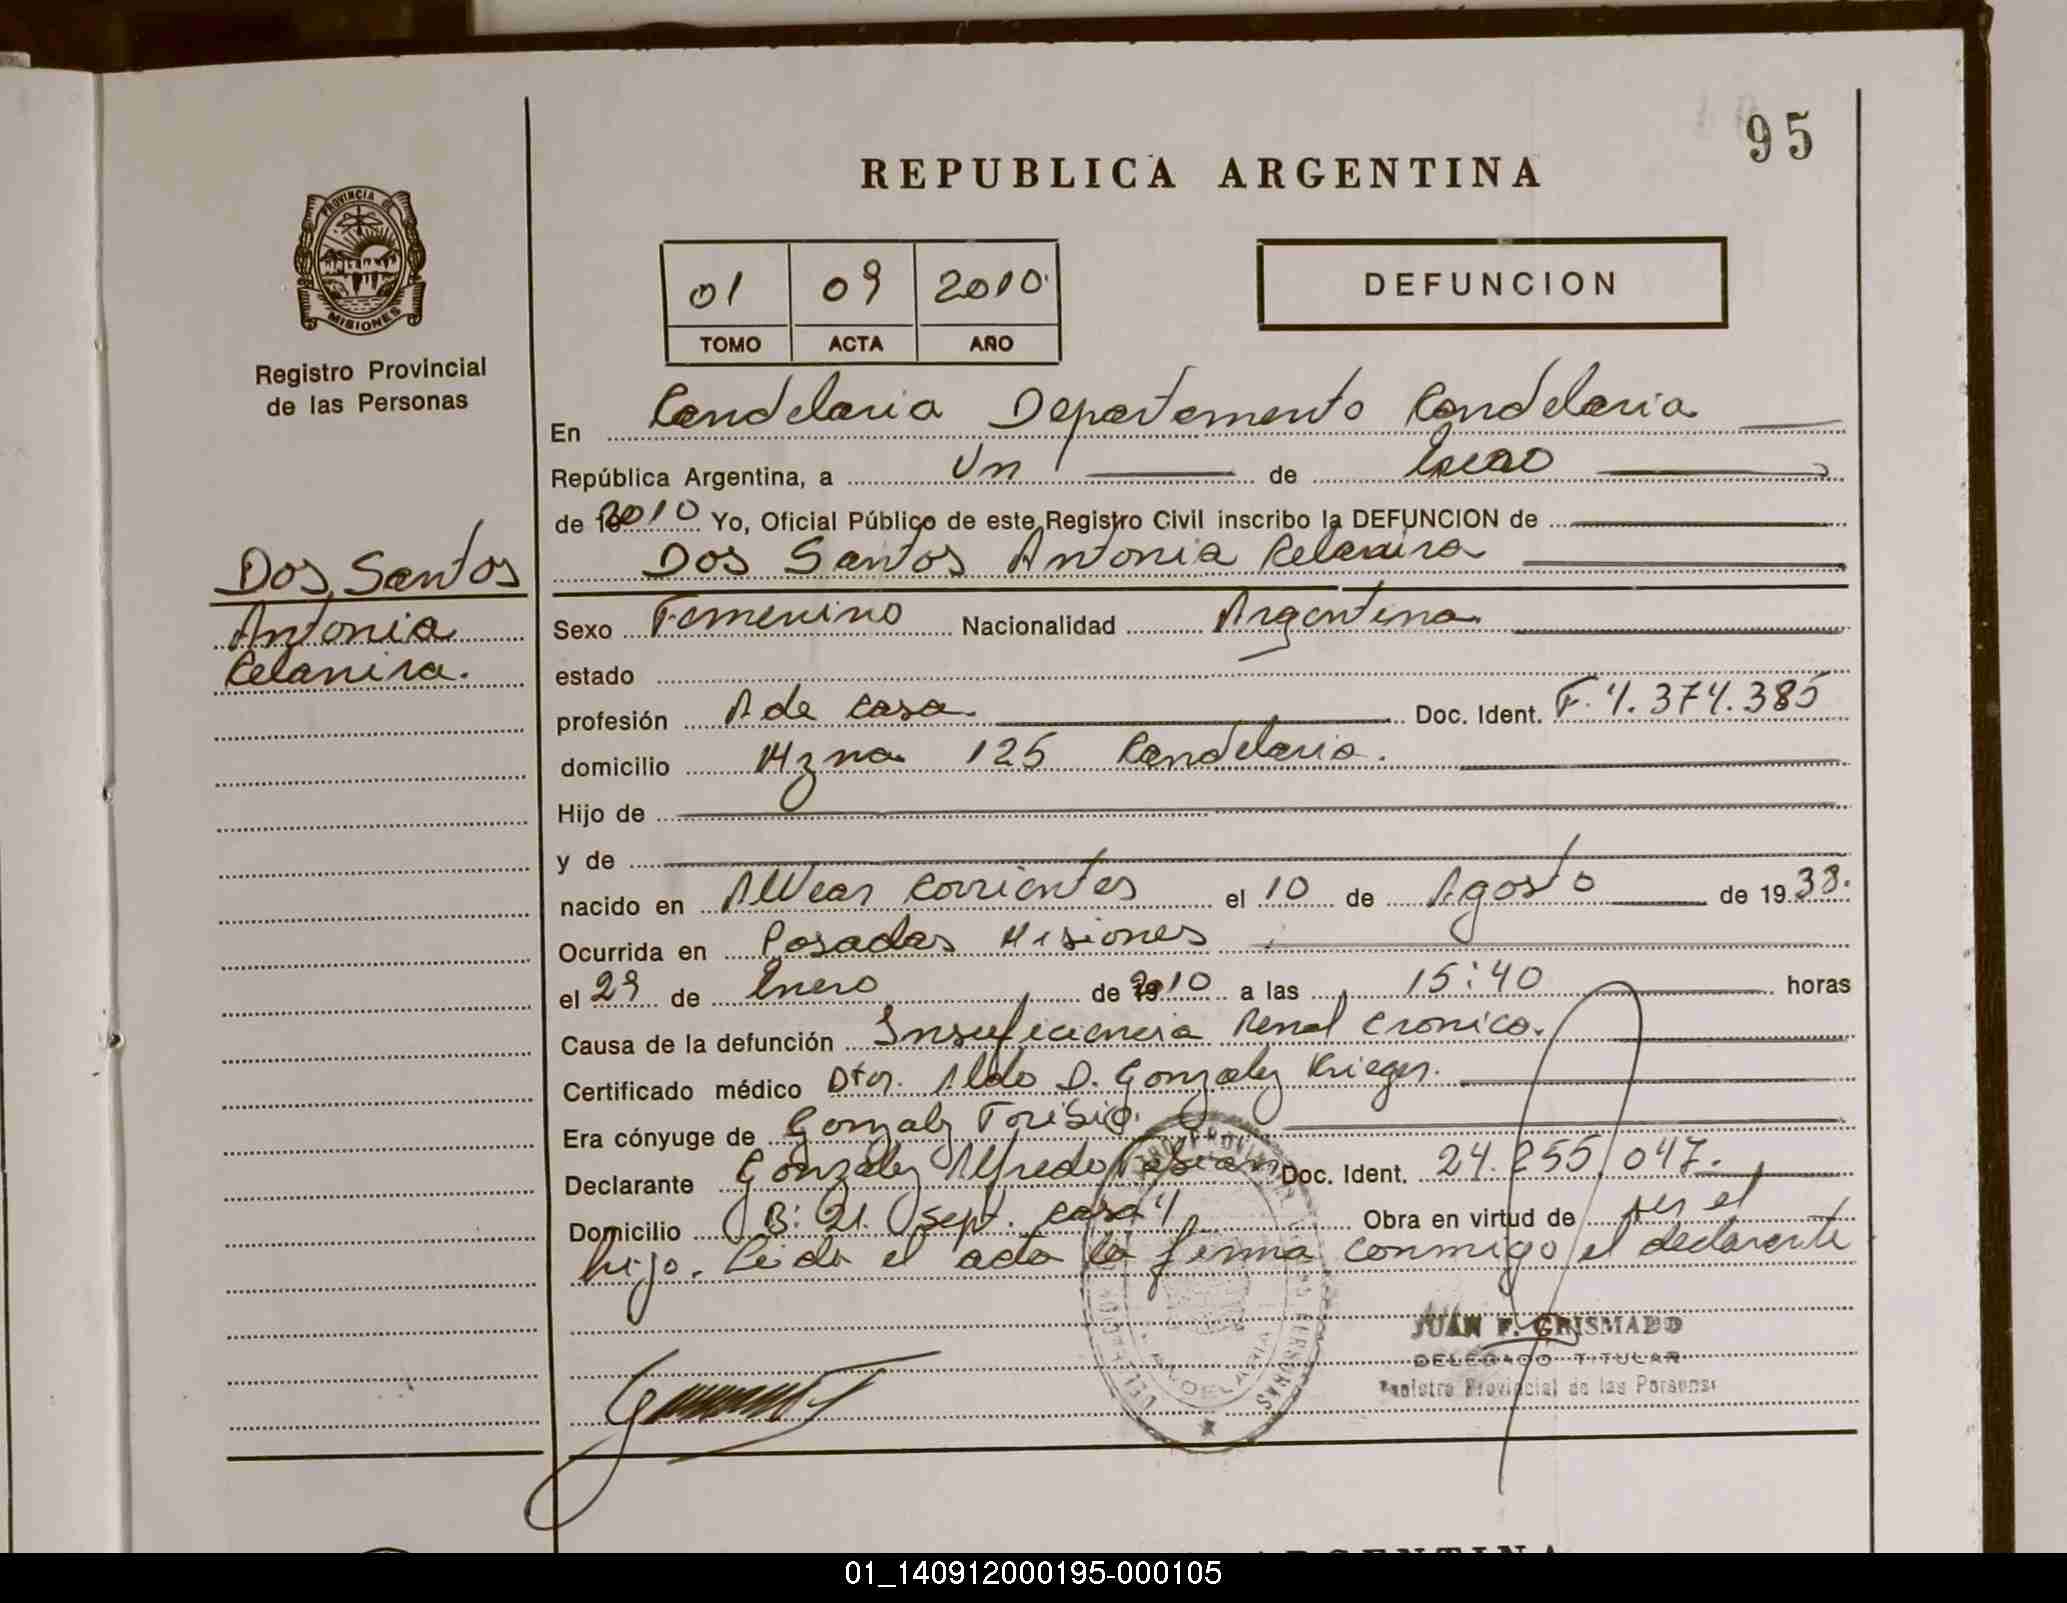 95
REPUBLICA ARGENTINA
PROVINCIA DE
MISIONES
Registro Provincial
de las Personas
01 09 2010
TOMO ACTA AÑO
DEFUNCION
En Candelaria Departamento Candelaria
República Argentina, a Un de
de 2010 Yo, Oficial Público de este Registro Civil inscribo la DEFUNCION de
Dos Santos Antonia Celanira
Dos Santos
Antonia
Celanira.
Sexo Femenino Nacionalidad Argentina
estado
profesión A de casa. Doc. Ident. F. 4.374.385
domicilio Mzna 125 Candelaria.
Hijo de
y de
nacido en Alvear Corrientes el 10 de Agosto de 1938.
Ocurrida en Posadas Misiones
el 29 de Enero de 2010 a las 15:40 horas
Causa de la defunción Insuficiencia Renal Cronica.
Certificado médico Dtor. Aldo D. Gonzalez Krieger.
Era cónyuge de Gonzalez Toribio.
Declarante Gonzalez Alfredo Fabian Doc. Ident. 24.255.047.
Domicilio B: 21 Sept. casa 4 Obra en virtud de ser el
hijo. Leida el acta la firma conmigo el declarante
JUAN F. GRISMADO
DELEGADO TITULAR
Registro Provincial de las Personas
ARGENTINA
01_140912000195-000105